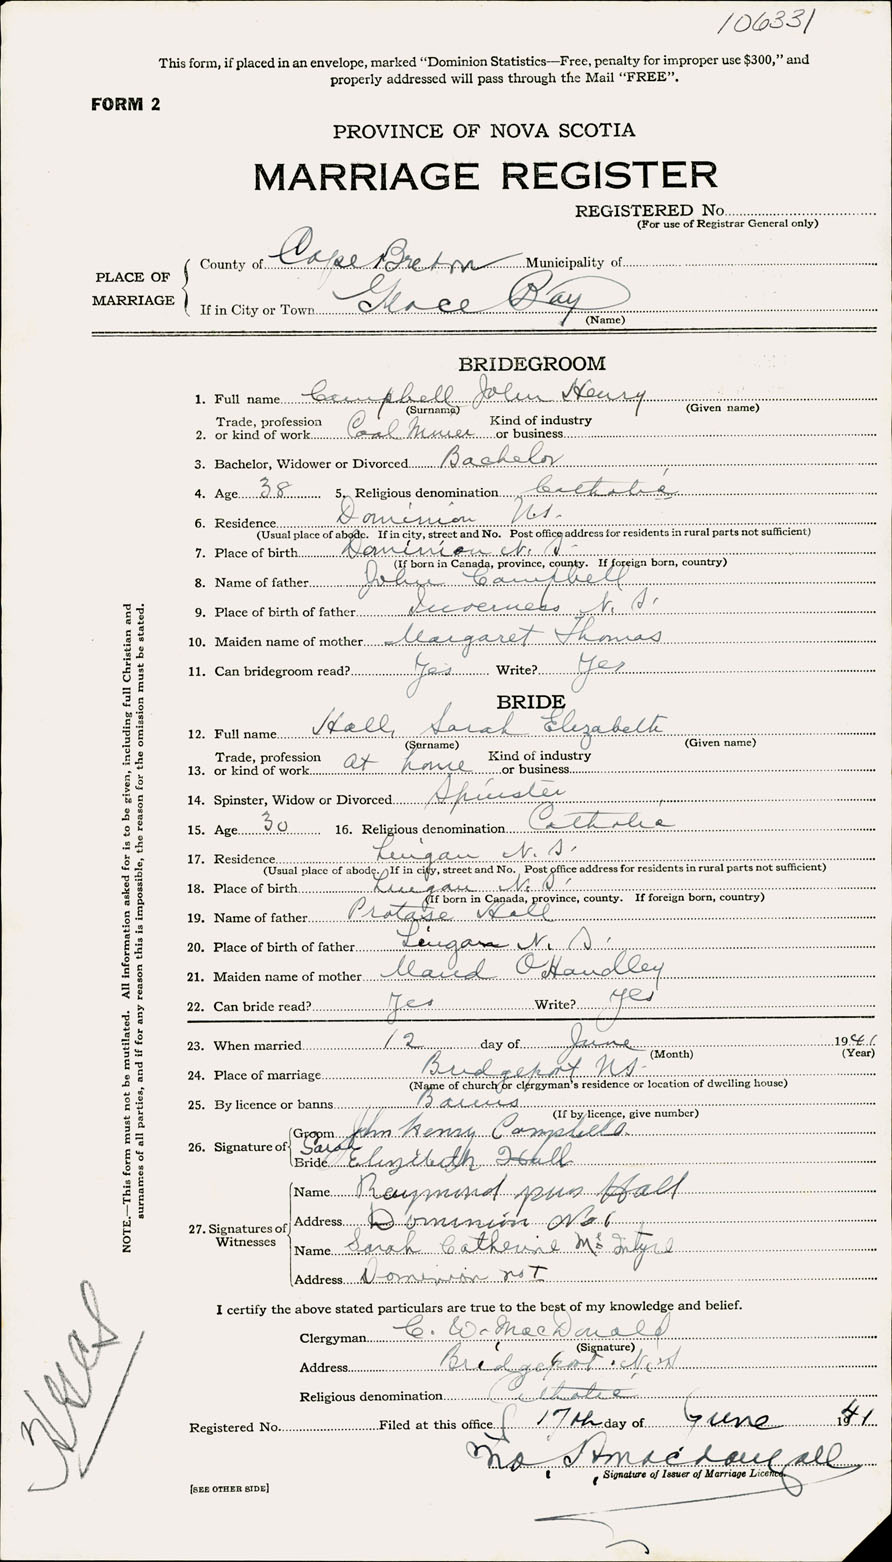 106331
This form, if placed in an envelope, marked “Dominion Statistics—Free, penalty for improper use $300,” and
properly addressed will pass through the Mail “FREE”.
FORM 2
PROVINCE OF NOVA SCOTIA
MARRIAGE REGISTER
REGISTERED No.
(For use of Registrar General only)
PLACE OF MARRIAGE
County of Cape Breton Municipality of
If in City or Town Glace Bay
(Name)
BRIDEGROOM
1. Full name Campbell John Henry
(Surname) (Given name)
Trade, profession Kind of industry
2. or kind of work Coal Miner or business
3. Bachelor, Widower or Divorced Bachelor
4. Age 38 5. Religious denomination Catholic
6. Residence Dominion N.S.
(Usual place of abode. If in city, street and No. Post office address for residents in rural parts not sufficient)
7. Place of birth Dominion N. S.
(If born in Canada, province, county. If foreign born, country)
8. Name of father John Campbell
9. Place of birth of father Inverness N. S.
10. Maiden name of mother Margaret Thomas
11. Can bridegroom read? Yes Write? Yes
BRIDE
12. Full name Hall, Sarah Elizabeth
(Surname) (Given name)
Trade, profession Kind of industry
13. or kind of work at home or business
14. Spinster, Widow or Divorced Spinster
15. Age 30 16. Religious denomination Catholic
17. Residence Lingan N. S.
(Usual place of abode. If in city, street and No. Post office address for residents in rural parts not sufficient)
18. Place of birth Lingan N. S.
(If born in Canada, province, county. If foreign born, country)
19. Name of father Protase Hall
20. Place of birth of father Lingan N. S.
21. Maiden name of mother Maud O'Handley
22. Can bride read? Yes Write? Yes
23. When married 12 day of June 1941
(Month) (Year)
24. Place of marriage Bridgeport N.S.
(Name of church or clergyman's residence or location of dwelling house)
25. By licence or banns Banns
(If by licence, give number)
26. Signature of
Groom John Henry Campbell
Sarah
Bride Elizabeth Hall
27. Signatures of Witnesses
Name Raymond pius Hall
Address Dominion No 1
Name Sarah Catherine McIntyre
Address Dominion no 1
I certify the above stated particulars are true to the best of my knowledge and belief.
Clergyman C. W. MacDonald
(Signature)
Address Bridgeport N.S
Religious denomination Catholic
Registered No. Filed at this office 17th day of June 1941
Macdougall
Signature of Issuer of Marriage Licence
[SEE OTHER SIDE]
NOTE.—This form must not be mutilated. All information asked for is to be given, including full Christian and
surnames of all parties, and if for any reason this is impossible, the reason for the omission must be stated.